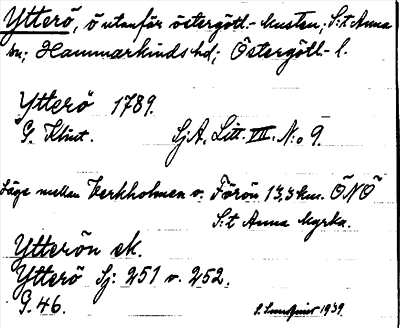 Ytterö, ö utanför östergötl.- kusten; S:t Anna
sn; Hammarkinds hd; Östergötl.- l.
Ytterö 1789.
G. Klint. SjA. Litt. VII. N:o 9.
Läge mellan Kerkholmen o. Förön 13,5 km. ÖNÖ
S:t Anna kyrka.
Ytterön ek.
Ytterö Sj: 251 o. 252.
G. 46. 1939.